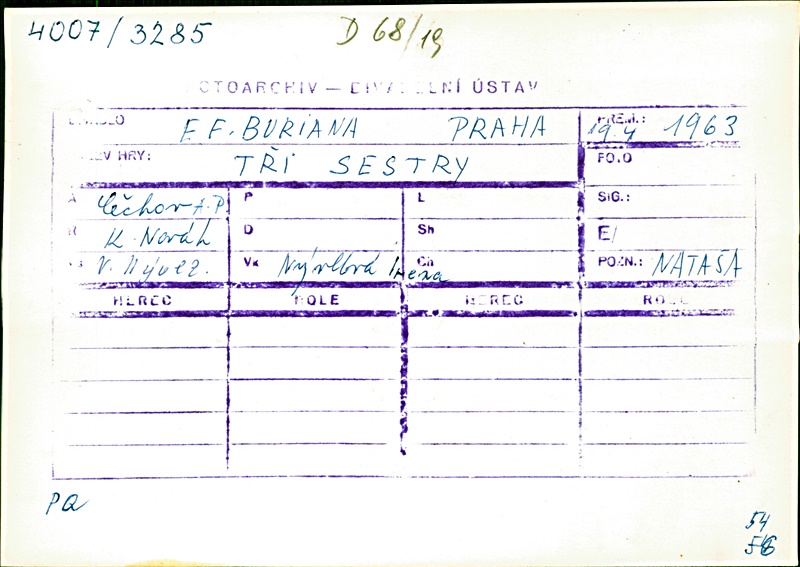 4007/3285 D 68/19
FOTOARCHIV — DIVADELNÍ ÚSTAV
DIVADLO E.F. BURIANA PRAHA PREM.: 19.4 1963
NÁZEV HRY: TŘI SESTRY FOTO
A Čechov A. P. P L SIG.:
R K. Novák D Sh E/
V. Nývlt. Vk Nývltová Irena Ch POZN.: NATAŠA
HEREC ROLE HEREC ROLE
PQ
54